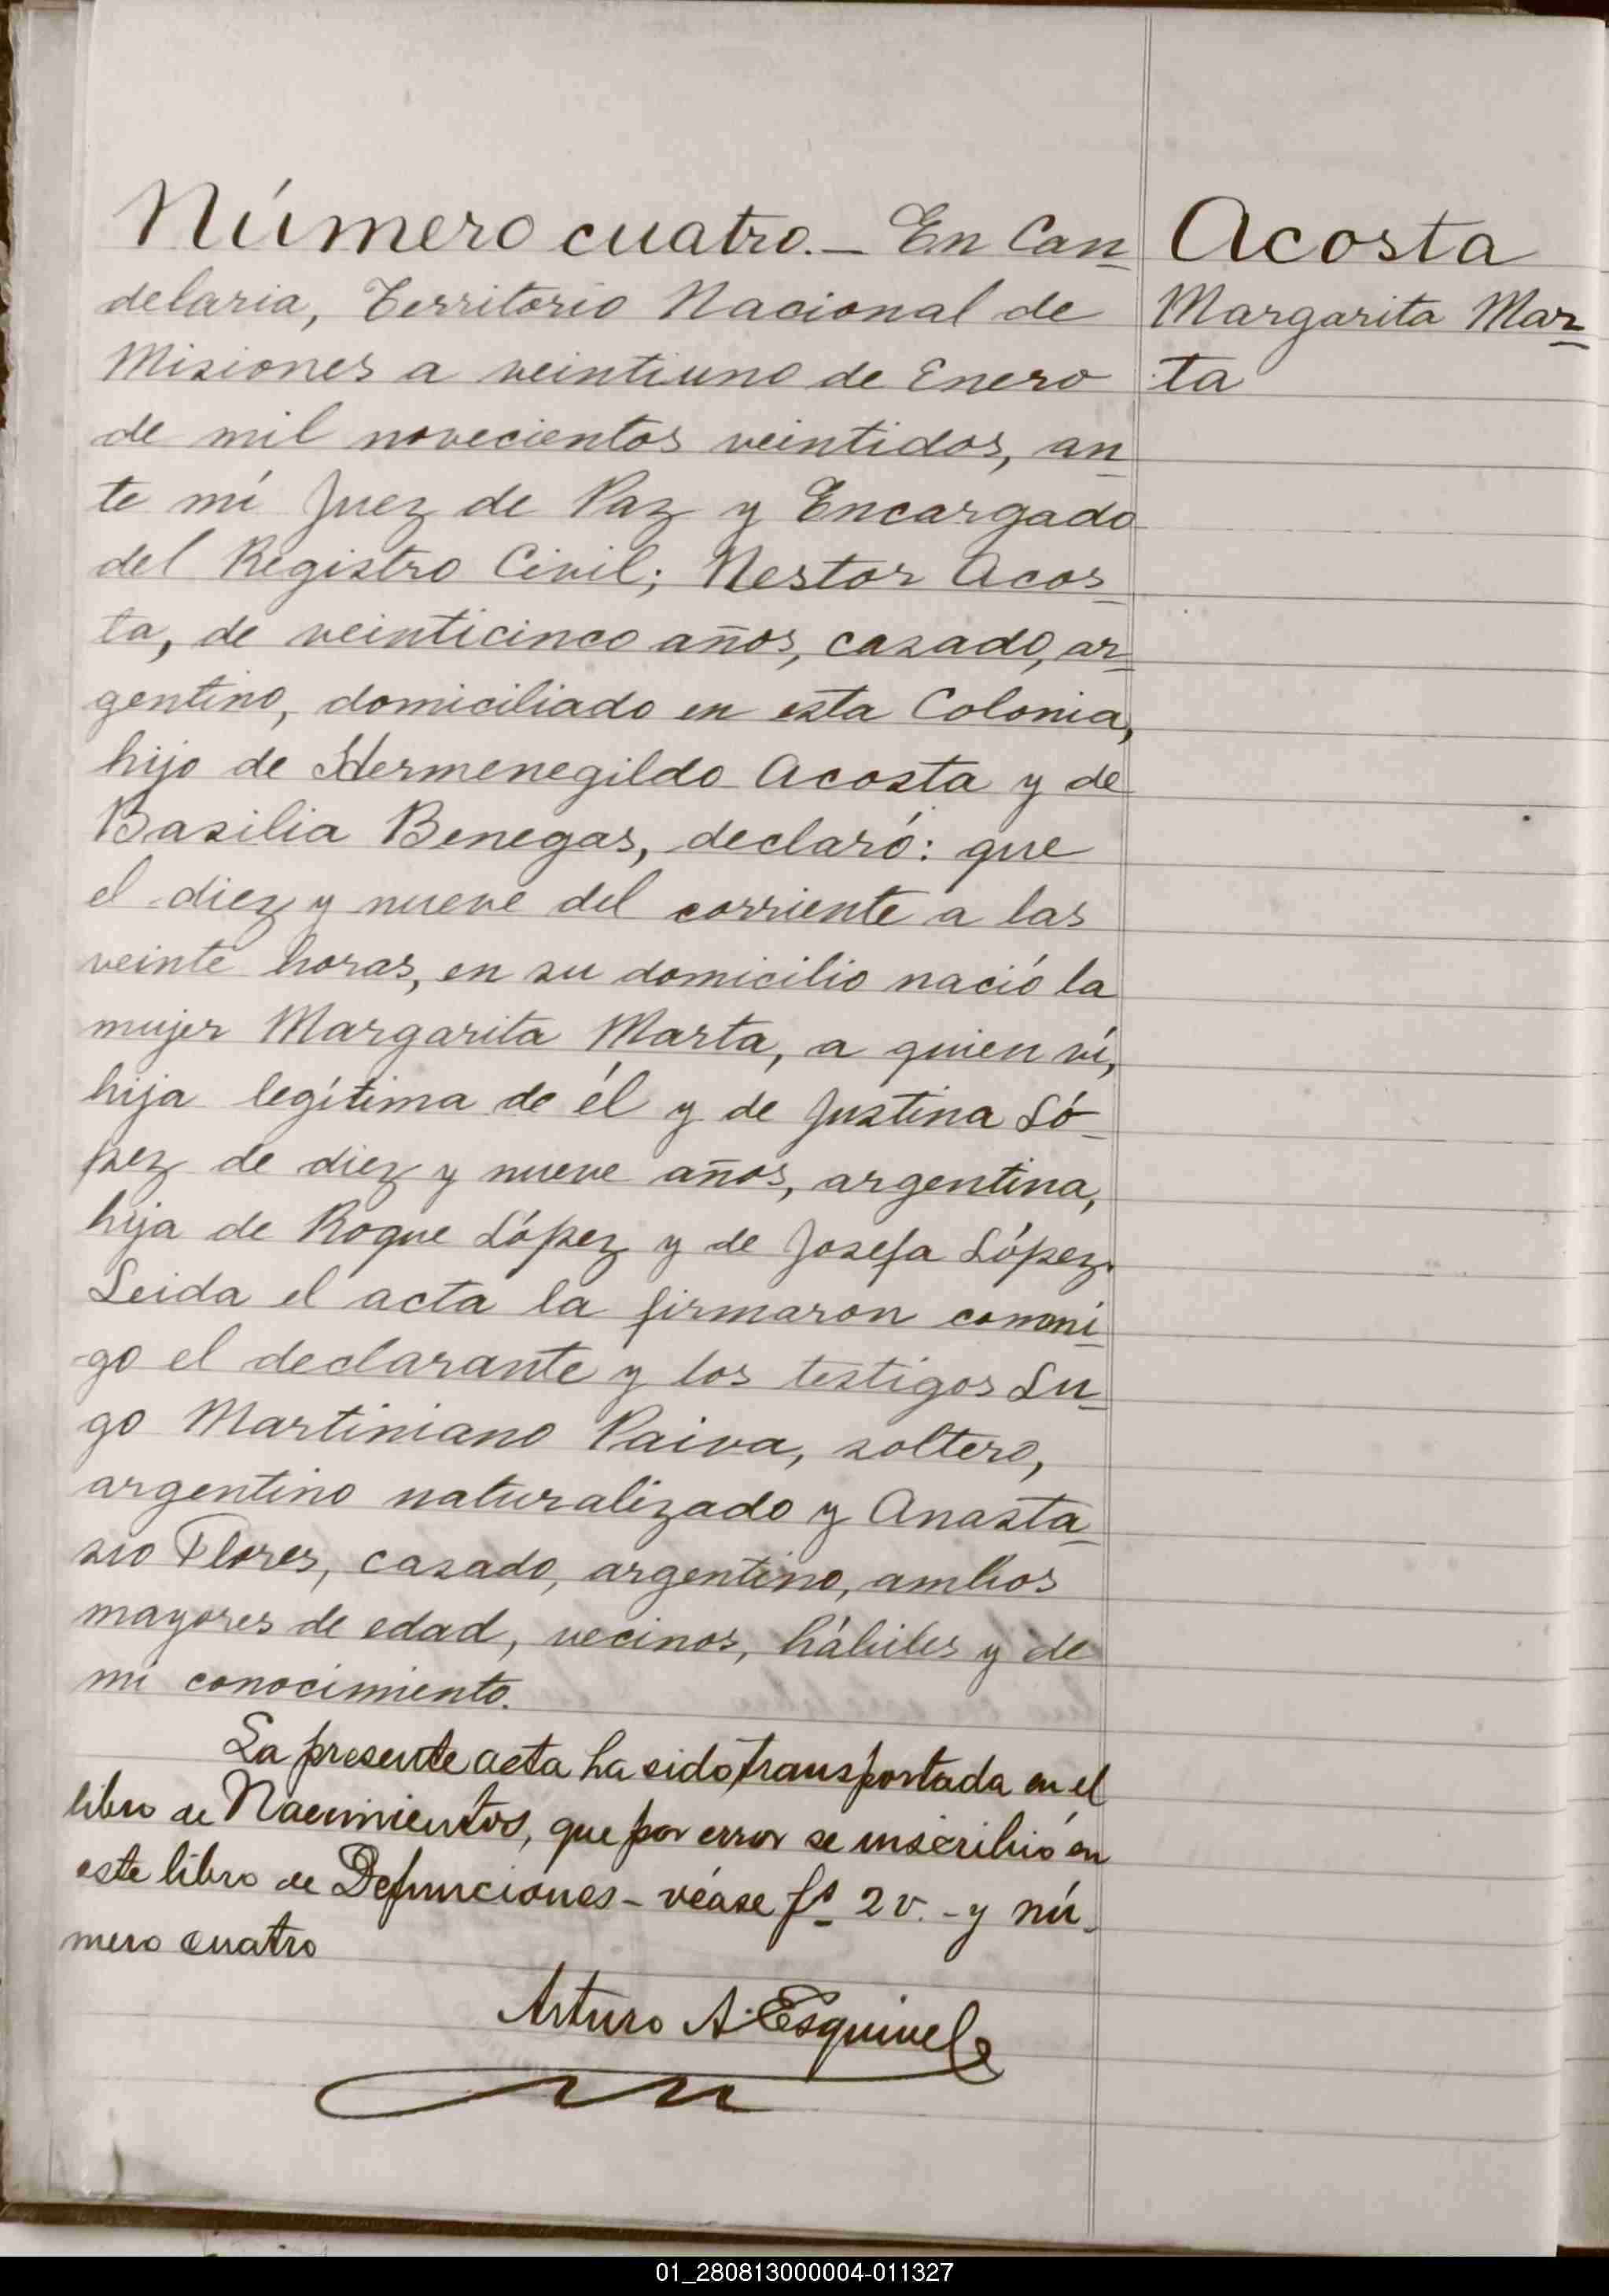 Número cuatro.— En Can
delaria, Territorio Nacional de
Misiones a veintiuno de Enero
de mil novecientos veintidos, an
te mí Juez de Paz y Encargado
del Registro Civil; Nestor Acos
ta, de veinticinco años, casado, ar
gentino, domiciliado en esta Colonia,
hijo de Hermenegildo Acosta y de
Basilia Benegas, declaró: que
el diez y nueve del corriente a las
veinte horas, en su domicilio nació la
mujer Margarita Marta, a quien ví,
hija legítima de él y de Justina Ló-
pez de diez y nueve años, argentina,
hija de Roque López y de Josefa López.
Leida el acta la firmaron conmi
go el declarante y los testigos Lu
go Martiniano Paiva, soltero,
argentino naturalizado y Anasta
sio Flores, casado, argentino, ambos
mayores de edad, vecinos, hábiles y de
mi conocimiento.
La presente acta ha sido transportada en el
libro de Nacimientos, que por error se inscribió en
este libro de Defunciones - véase fs 2 v. - y nú-
mero cuatro
Arturo A. Esquivel
Acosta
Margarita Mar
ta
01_280813000004-011327